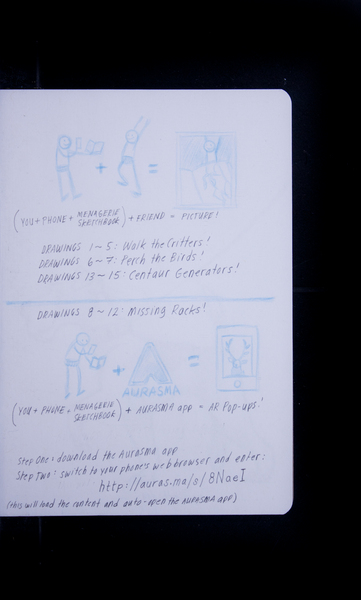 (YOU + PHONE + MENAGERIE SKETCHBOOK) + FRIEND = PICTURE!
DRAWINGS 1~5: Walk the Critters!
DRAWINGS 6~7: Perch the Birds!
DRAWINGS 13~15: Centaur Generators!
DRAWINGS 8~12: Missing Racks!
AURASMA
(YOU + PHONE + MENAGERIE SKETCHBOOK) + AURASMA app = AR Pop-ups!
Step One: download the Aurasma app
Step Two: switch to your phone's web browser and enter:
http://auras.ma/s/8NaeI
(this will load the content and auto-open the AURASMA app)